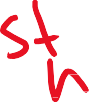 st
h